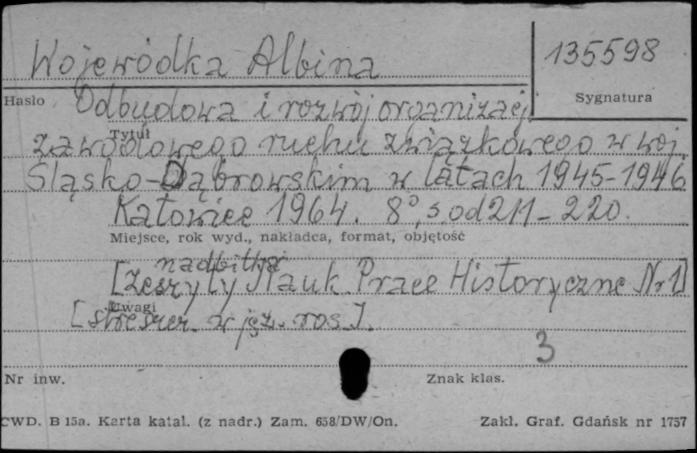 Wojewódka Albina
135598
Hasło
Sygnatura
Odbudowa i rozwój organizacji
Tytuł
zawodowego ruchu związkowego w woj.
Śląsko-Dąbrowskim w latach 1945-1946
Katowice 1964. 8°, s. od 211-220.
Miejsce, rok wyd., nakładca, format, objętość
nadbitka
[Zeszyty Nauk. Prace Historyczne Nr 1]
Uwagi
[streszcz. w jęz. ros.].
3
Nr inw.
Znak klas.
CWD. B 15a. Karta katal. (z nadr.) Zam. 658/DW/On.
Zakł. Graf. Gdańsk nr 1757